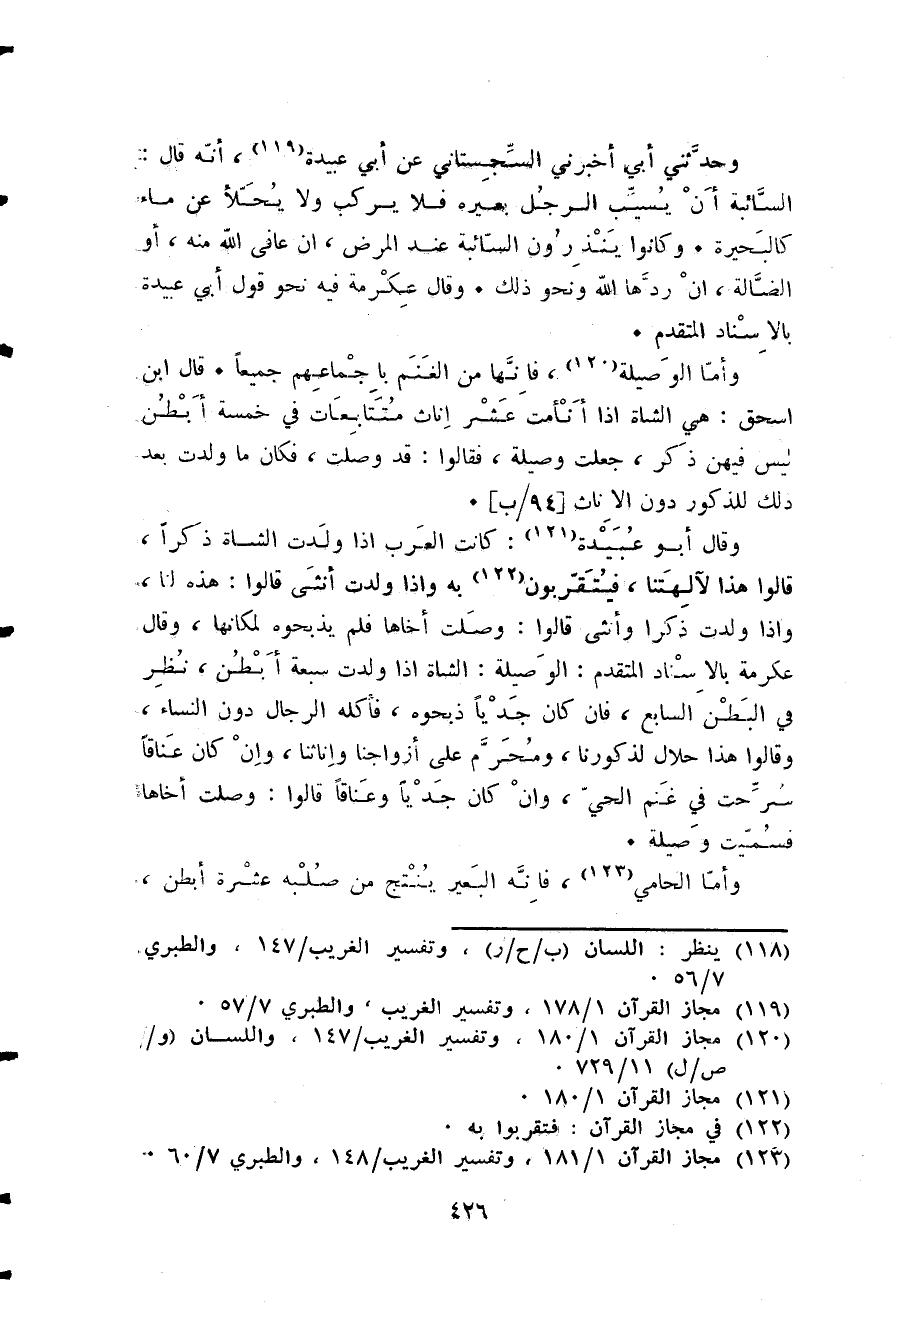 وحدَّثني أبي أخبرني السِّجستاني عن أبي عبيدة(١١٩) ، أنّه قال :
السَّائبة أنْ يُسيِّب الرجلُ بعيره فلا يركب ولا يُحَلّأ عن ماء
كالبَحيرة • وكانوا يَنْذِرُون السّائبة عند المرض ، ان عافى الله منه ، أو
الضّالة ، انْ ردَّها الله ونحو ذلك • وقال عِكْرمة فيه نحو قول أبي عبيدة
بالاِسْناد المتقدم •
وأمّا الوَصيلة(١٢٠) ، فاِنَّها من الغَنَم باِجْماعِهم جميعاً • قال ابن
اسحق : هي الشاة اذا أتْأمت عَشْر إناث مُتَتابِعَات في خمسة أبْطُن
ليس فيهن ذَكَر ، جعلت وصيلة ، فقالوا : قد وصلت ، فكان ما ولدت بعد
ذلك للذكور دون الاِناث [٩٤/ب] •
وقال أبو عُبَيْدة(١٢١) : كانت العَرَب اذا ولَدت الشاة ذكَراً ،
قالوا هذا لآلِهَتنا ، فيُتَقَرّبون(١٢٢) به واذا ولدت أنثَى قالوا : هذه لنا ،
واذا ولدت ذكرا وأنثى قالوا : وصَلَت أخاها فلم يذبحوه لمكانها ، وقال
عكرمة بالاِسْناد المتقدم : الوَصيلة : الشاة اذا ولدت سبعة أبْطُن ، نُظِر
في البَطْن السابع ، فان كان جَدْياً ذبحوه ، فأكله الرجال دون النساء ،
وقالوا هذا حلال لذكورنا ، ومُحَرَّم على أزواجنا وإناثنا ، وإنْ كان عَناقاً
سُرِّحت في غَنَم الحيّ ، وانْ كان جَدْياً وعَناقاً قالوا : وصلت أخاها
فسُمّيت وَصيلة •
وأمّا الحامي(١٢٣) ، فاِنَّه البَعير يُنْتِج من صُلْبه عشْرة أبطن ،
(١١٨) ينظر : اللسان (ب/ح/ر) ، وتفسير الغريب/١٤٧ ، والطبري
٥٦/٧ ٠
(١١٩) مجاز القرآن ١٧٨/١ ، وتفسير الغريب ، والطبري ٥٧/٧ ٠
(١٢٠) مجاز القرآن ١٨٠/١ ، وتفسير الغريب/١٤٧ ، واللسان (و/
ص/ل) ٧٢٩/١١ ٠
(١٢١) مجاز القرآن ١٨٠/١ ٠
(١٢٢) في مجاز القرآن : فتقربوا به ٠
(١٢٣) مجاز القرآن ١٨١/١ ، وتفسير الغريب/١٤٨ ، والطبري ٦٠/٧ ٠
٤٢٦